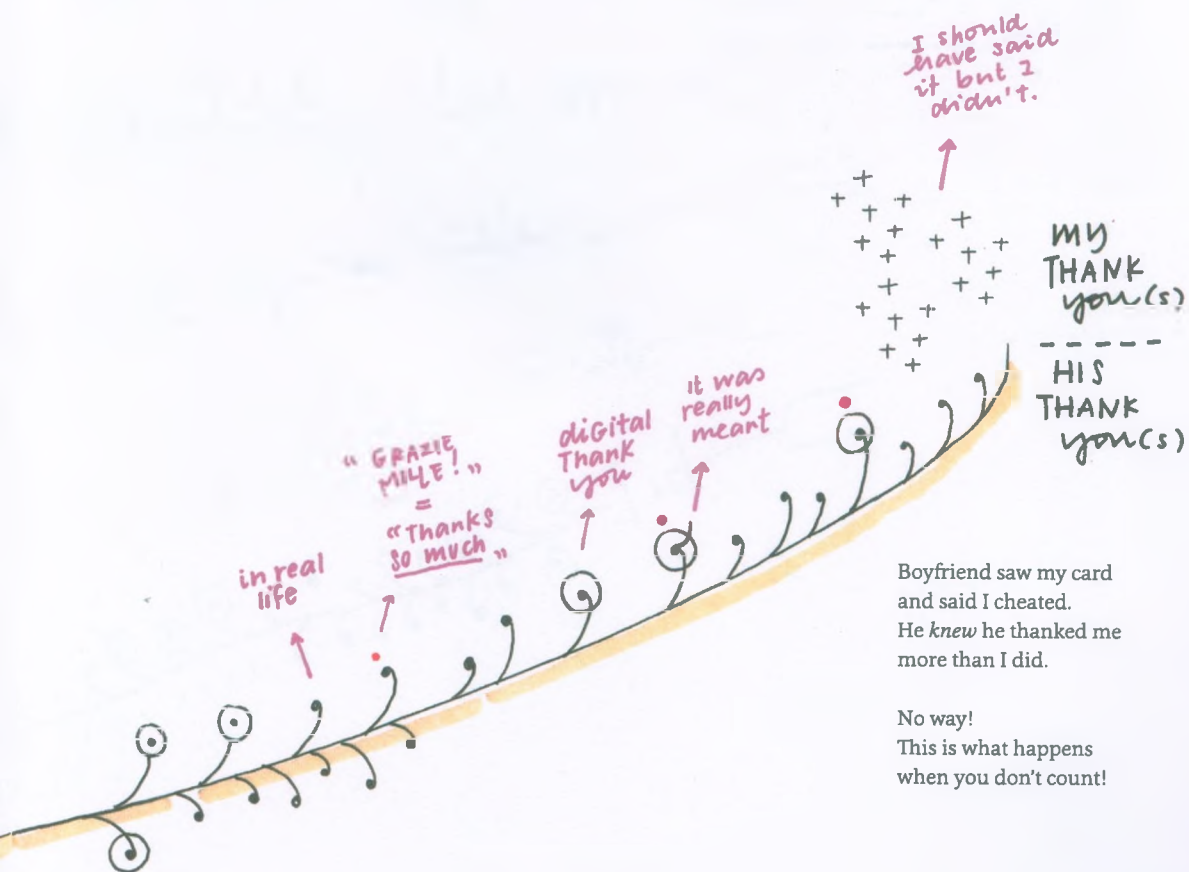 I should
have said
it but I
didn't.
MY
THANK
you(s)
HIS
THANK
you(s)
it was
really
meant
diGital
Thank
you
“ GRAZIE
MILLE! ”
=
“Thanks
so much ”
in real
life
Boyfriend saw my card
and said I cheated.
He knew he thanked me
more than I did.
No way!
This is what happens
when you don't count!